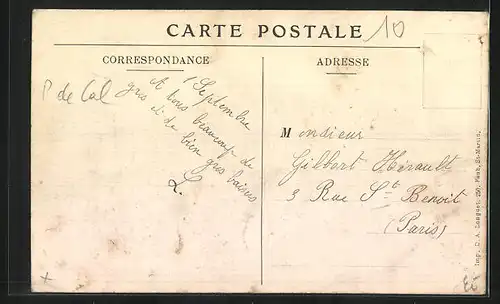 CARTE POSTALE
10
CORRESPONDANCE
ADRESSE
P de Cal
1 Septembre
A tous beaucoup de
gros et de bien gros baisers
L.
Monsieur
Gilbert Hérault
3 Rue St Benoit
(Paris)
Imp. D. A. Longuet, 250, Faub. St-Martin.